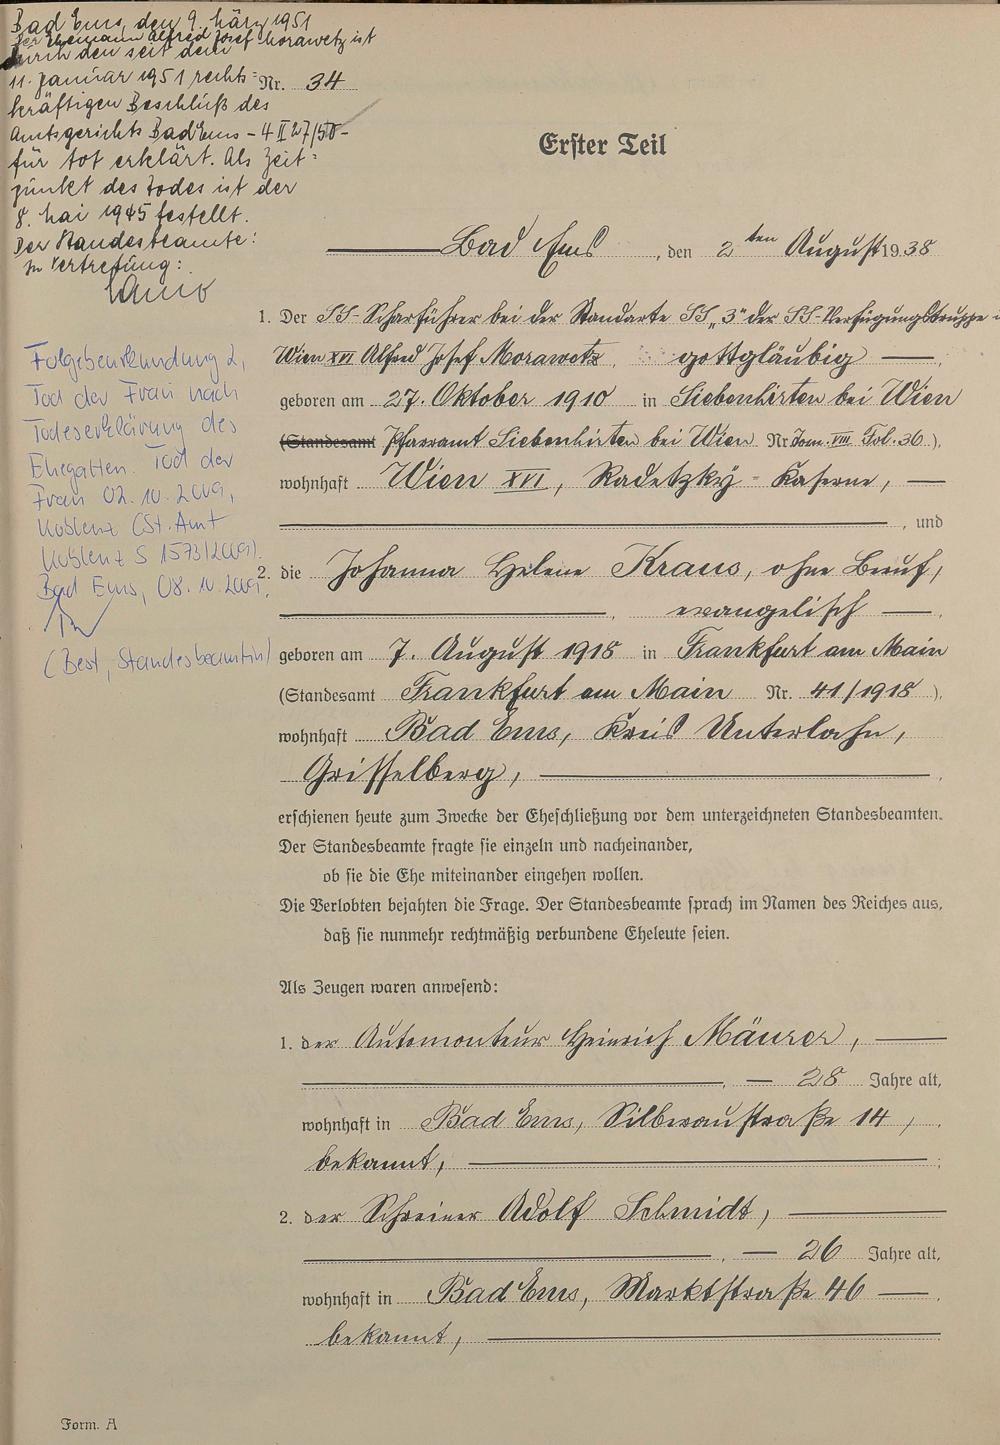 Bad Ems, den 9. März 1951
Der Ehemann Alfred Josef Morawetz ist
durch den seit dem
11. Januar 1951 rechts=
kräftigen Beschluß des
Amtsgerichts Bad Ems - 4 II 27/50 -
für tot erklärt. Als Zeit=
punkt des Todes ist der
8. Mai 1945 festellt.
Der Standesbeamte:
In Vertretung:
Folgebeurkundung 2,
Tod der Frau nach
Todeserklärung des
Ehegatten. Tod der
Frau 02.10.2009,
Koblenz (St.Amt
Koblenz S 1573/2009).
Bad Ems, 08.10.2009.
(Best, Standesbeamtin)
Nr. 34
Erster Teil
Bad Ems, den 2ten August 1938
1. Der SS-Scharführer bei der Standarte SS „3" der SS-Verfügungstruppe
Wien XVI Alfred Josef Morawetz, gottgläubig
geboren am 27. Oktober 1910 in Siebenhirten bei Wien
(Standesamt Pfarramt Siebenhirten bei Wien Nr Tom. VIII Fol. 36),
wohnhaft Wien XVI, Radetzky-Kaserne,
, und
2. die Johanna Helene Kraus, ohne Beruf,
, evangelisch
geboren am 7. August 1918 in Frankfurt am Main
(Standesamt Frankfurt am Main Nr. 41/1918),
wohnhaft Bad Ems, Kreis Unterlahn,
Grisselberg,
erschienen heute zum Zwecke der Eheschließung vor dem unterzeichneten Standesbeamten.
Der Standesbeamte fragte sie einzeln und nacheinander,
ob sie die Ehe miteinander eingehen wollen.
Die Verlobten bejahten die Frage. Der Standesbeamte sprach im Namen des Reiches aus,
daß sie nunmehr rechtmäßig verbundene Eheleute seien.
Als Zeugen waren anwesend:
1. der Automonteur Heinrich Mäurer,
, 28 Jahre alt,
wohnhaft in Bad Ems, Silberaustraße 14,
bekannt,
2. der Schreiner Adolf Schmidt,
, 26 Jahre alt,
wohnhaft in Bad Ems, Marktstraße 46
bekannt,
Form. A